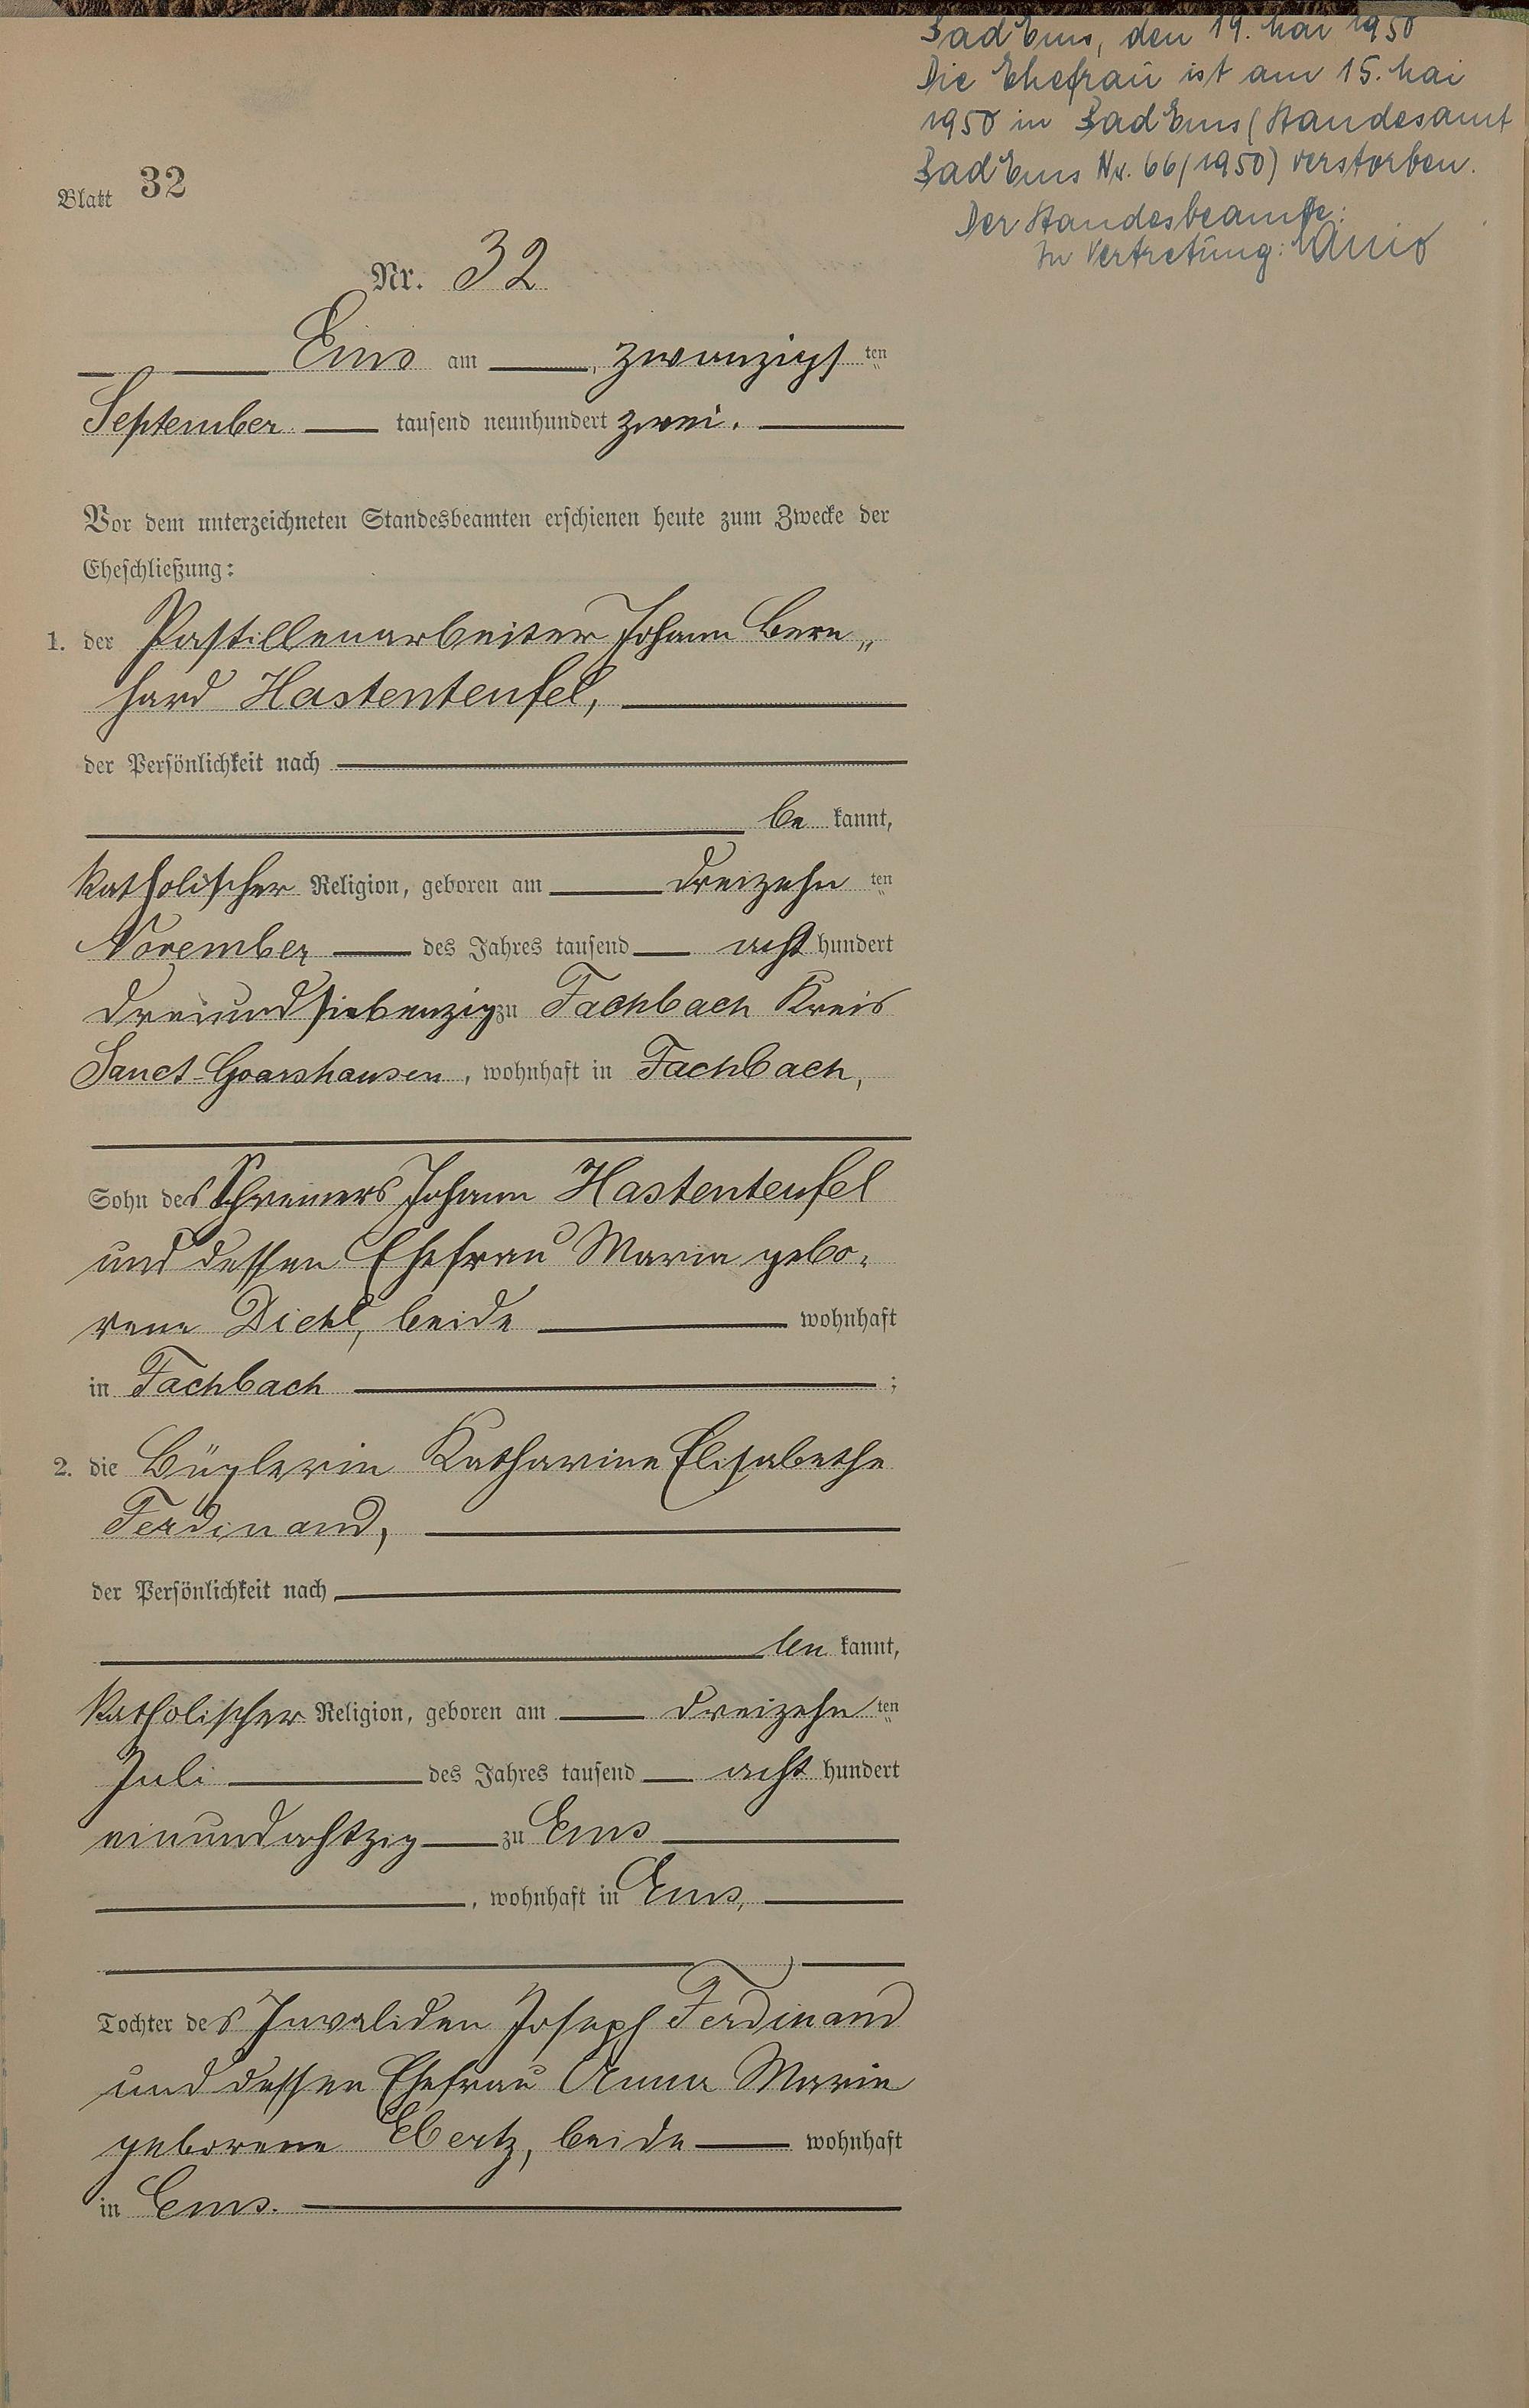 Bad Ems, den 19. Mai 1950
Die Ehefrau ist am 15. Mai
1950 in Bad Ems (Standesamt
Bad Ems Nr. 66/1950) verstorben.
Der Standesbeamte:
In Vertretung:
Blatt 32
Nr. 32
Ems am zwanzigsten
September tausend neunhundert zwei.
Vor dem unterzeichneten Standesbeamten erschienen heute zum Zwecke der
Eheschließung:
1. der Pastillenarbeiter Johann Bern„
hard Hastenteufel,
der Persönlichkeit nach
be kannt,
katholischer Religion, geboren am dreizehn ten
November des Jahres tausend acht hundert
dreiundsiebenzig zu Fachbach Kreis
Sanct-Goarshausen, wohnhaft in Fachbach,
Sohn des Schreiners Johann Hastenteufel
und dessen Ehefrau Maria gebo-
rene Diehl, beide wohnhaft
in Fachbach ;
2. die Büglerin Katharina Elisabethe
Ferdinand,
der Persönlichkeit nach
be kannt,
katholischer Religion, geboren am dreizehn ten
Juli des Jahres tausend acht hundert
einundachtzig zu Ems
, wohnhaft in Ems,
Tochter des Invaliden Joseph Ferdinand
und dessen Ehefrau Anna Maria
geborene Ebertz, beide wohnhaft
in Ems.